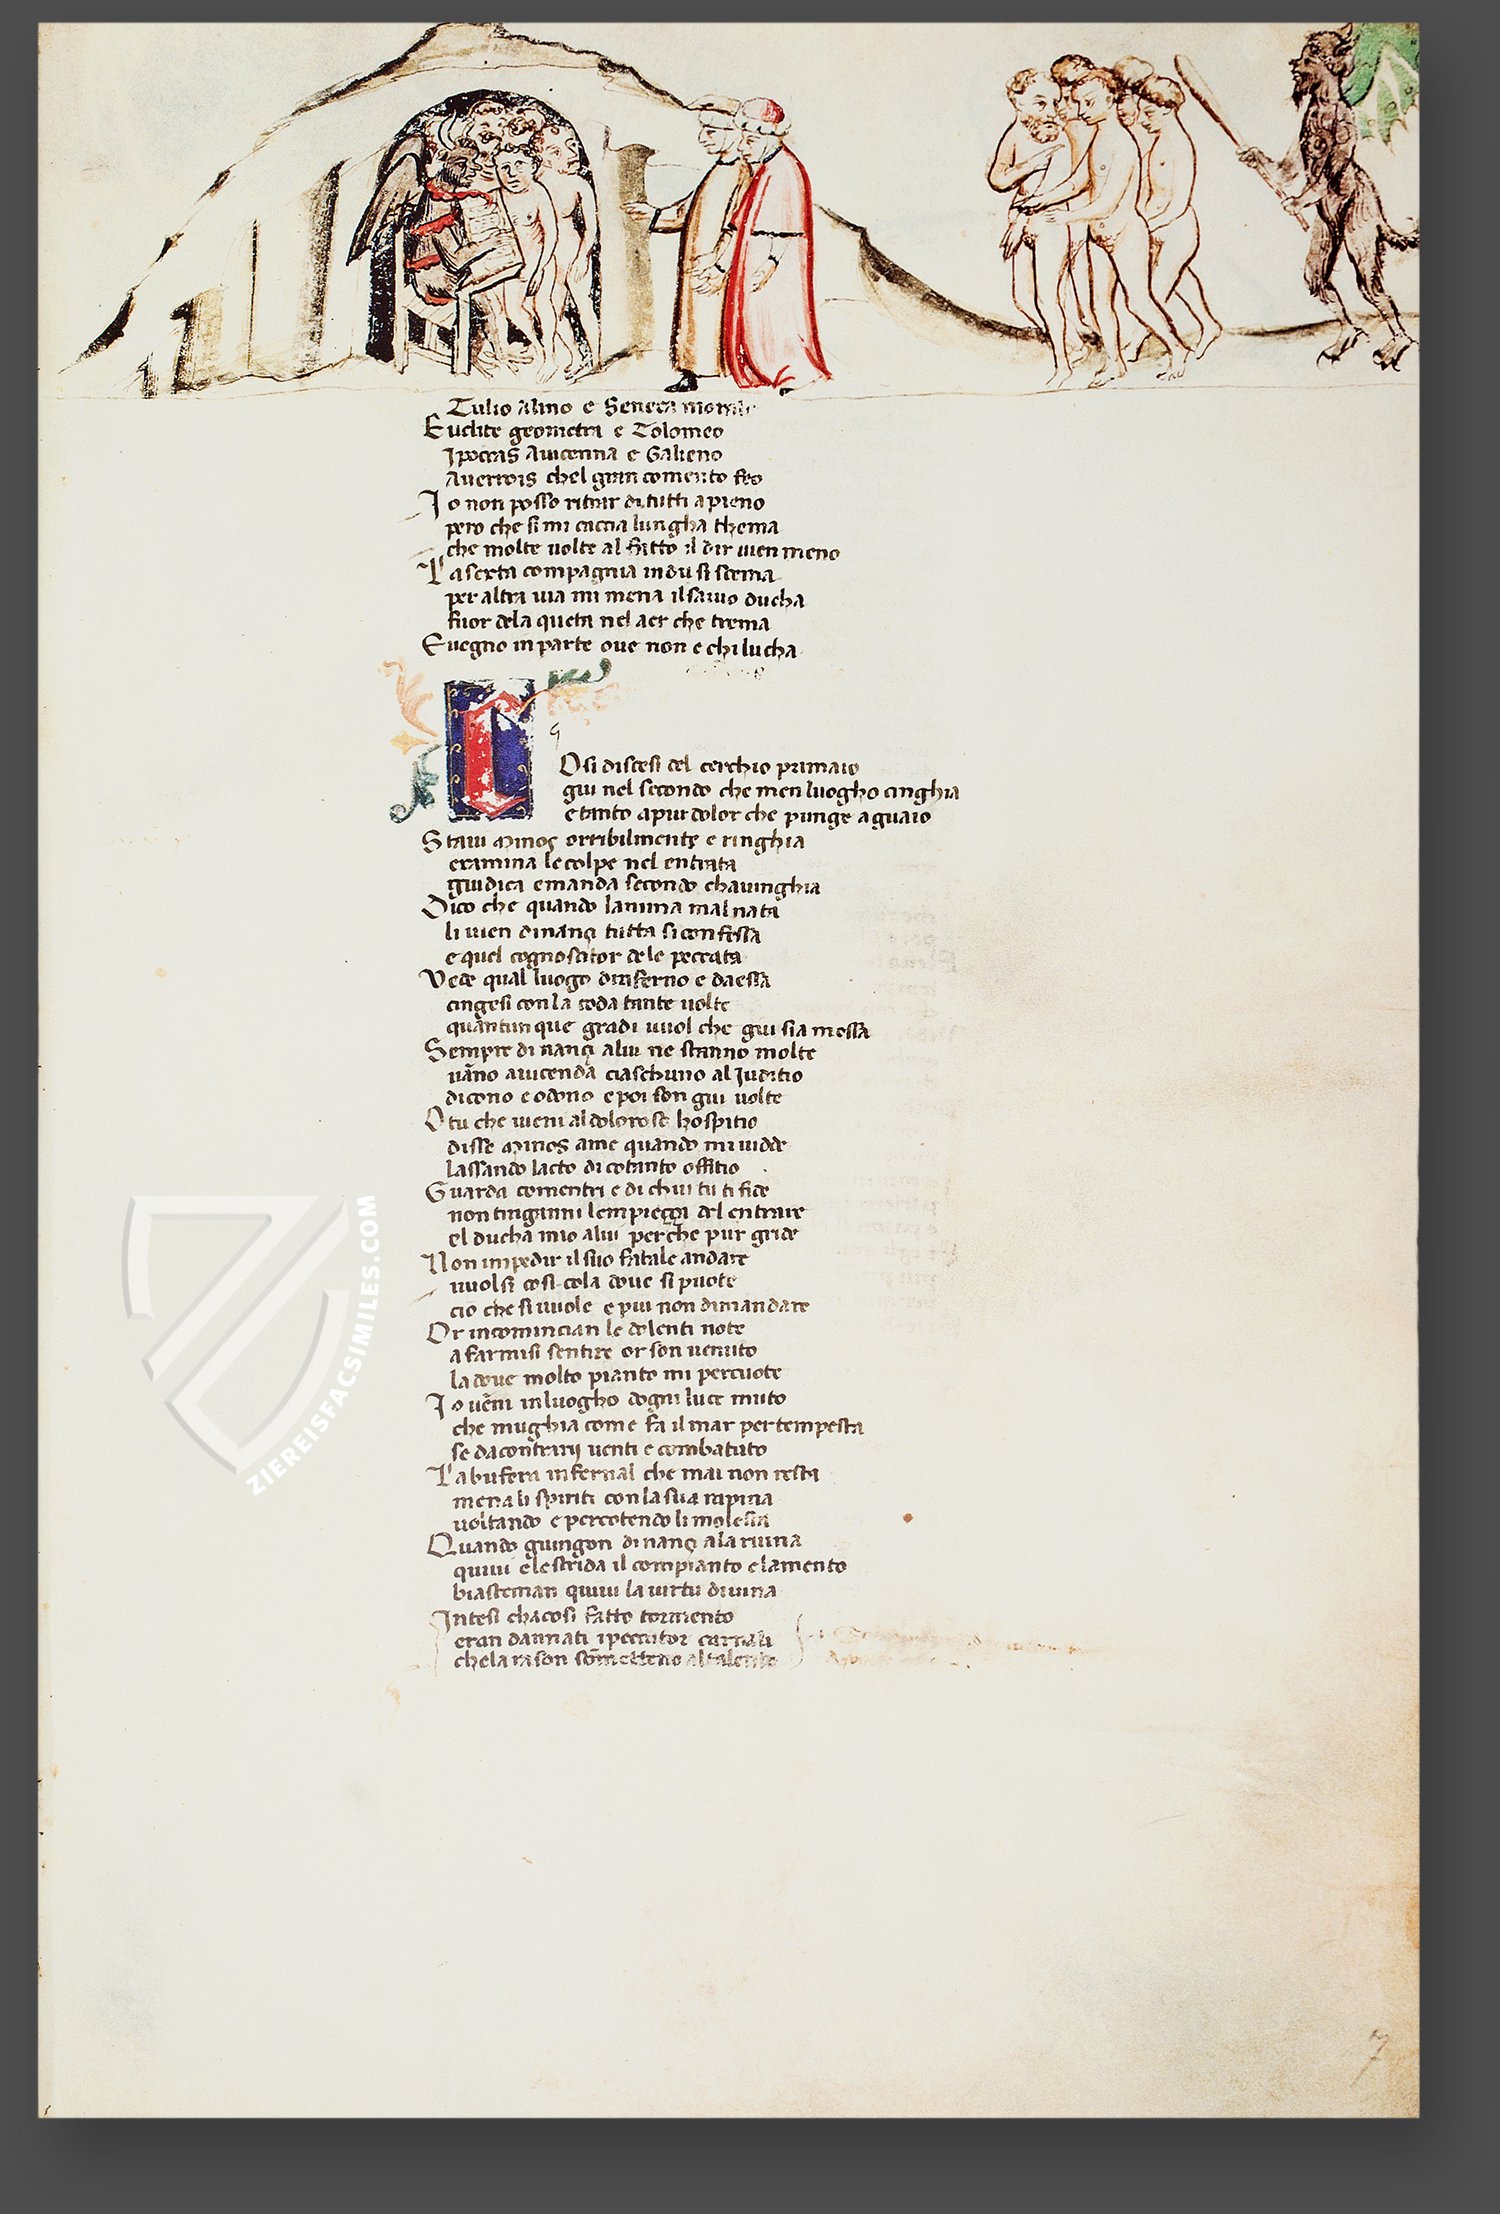 Tulio alino e Seneca morale
Euclite geometra e Tolomeo
Ipocras Auicenna e Galieno
Auerrois chel gran comento feo
Io non posso ritrar di tutti a pieno
pero che si mi caccia lungha thema
che molte uolte al fatto il dir uien meno
La sexta compagnia in du si scema
per altra uia mi mena il sauio ducha
fuor dela queta nel aer che trema
E uegno in parte oue non e chi lucha
C
Osi discesi del cerchio primaio
giu nel secondo che men luogho cinghia
e tanto a piu dolor che punge a guaio
Staui Minos orribilmente e ringhia
examina le colpe nel entrata
giudica e manda secondo chauinghia
Dico che quando lanima mal nata
li uien dinançi tutta si confessa
e quel cognoscitor de le peccata
Vede qual luogo dinferno e da essa
cingesi con la coda tante uolte
quantunque gradi uuol che giu sia messa
Sempre di nançi a lui ne stanno molte
uãno a uicenda ciaschuno al Juditio
dicono e odono e poi son giu uolte
O tu che uieni al doloroso hospitio
disse Minos a me quando mi uidde
lassando lacto di cotanto offitio
Guarda comentri e di chui tu ti fide
non tinganni lempieçça del entrare
el ducha mio a lui perche pur gride
Non impedir il suo fatale andare
uuolsi cosi cola doue si puote
cio che si uuole e piu non dimandare
Or incomincian le dolenti note
a farmisi sentire or son uenuto
la doue molto pianto mi percuote
Io uẽni in luogho dogni luce muto
che mughia come fa il mar per tempesta
se da contrarij uenti e combatuto
La bufera infernal che mai non resta
mena li spiriti con la sua rapina
uoltando e percotendo li molesta
Quando giungon dinançi a la ruina
quiui e le strida il compianto e lamento
biasteman quiui la uirtu diuina
Intesi cha cosi fatto tormento
eran dannati i peccator carnali
che la rason sõmetteno al talento
7
ZIEREISFACSIMILES.COM